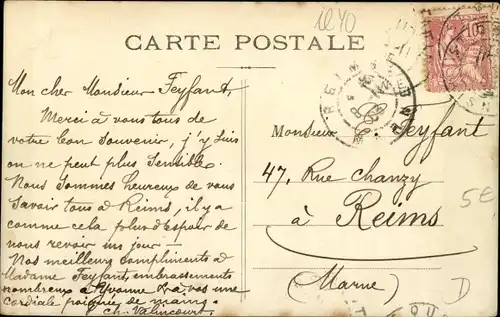 ie 40
CARTE POSTALE
Mon cher Monsieur Feyfant,
Merci à vous tous de
votre bon souvenir, j'y suis
on ne peut plus sensible.
Nous sommes heureux de vous
savoir tous à Reims, il y a
comme cela plus d'espoir de
nous revoir un jour —
Nos meilleurs compliments à
Madame Feyfant, embrassements
nombreux à Yvonne & à vos une
cordiale poignée de mains.
Ch. Valincourt
Monsieur Feyfant
47, Rue Chanzy
à Reims
(Marne)
REIMS
10
5€
D